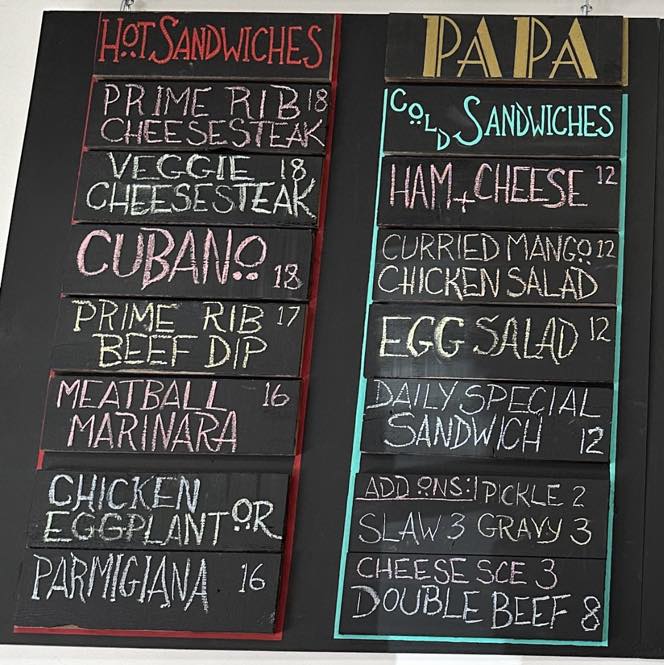 HOT SANDWICHES
PRIME RIB 18
CHEESESTEAK
VEGGIE 18
CHEESESTEAK
CUBANO 18
PRIME RIB 17
BEEF DIP
MEATBALL 16
MARINARA
CHICKEN OR
EGGPLANT
PARMIGIANA 16
PAPA
COLD SANDWICHES
HAM + CHEESE 12
CURRIED MANGO 12
CHICKEN SALAD
EGG SALAD 12
DAILY SPECIAL
SANDWICH 12
ADD ONS: PICKLE 2
SLAW 3 GRAVY 3
CHEESE SCE 3
DOUBLE BEEF 8